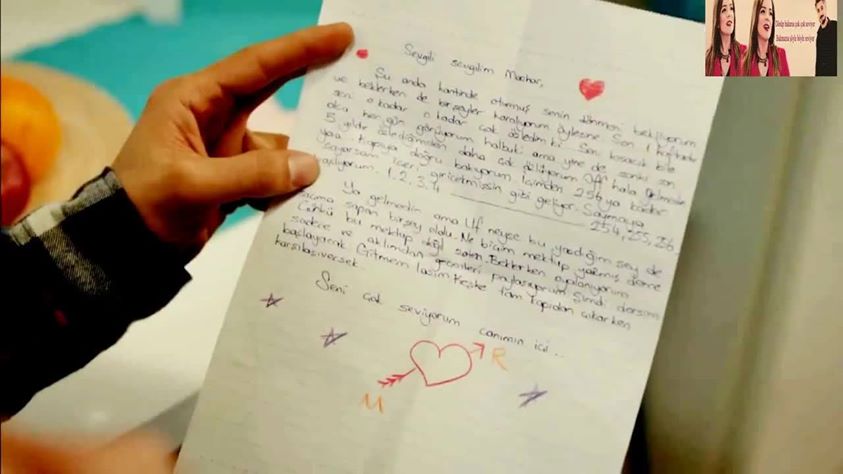 Sevgili sevgilim Mazhar,
Şu anda kantinde oturmuş senin dönmeni bekliyorum
ve beklerken de birşeyler karalıyorum öylesine. Son 1 haftadır
seni o kadar o kadar çok özledim ki. Seni kısacık bile
olsa her gün görüyorum halbuki ama yine de sanki son
5 yıldır özlediğimden daha çok özlüyorum. Off hala gelmedin
yaa. Kapıya doğru bakıyorum. İçimden 256 ya kadar
sayarsam içeri giricekmişsin gibi geliyor. Saymaya
başlıyorum. 1, 2, 3, 4 254, 255, 256.
Ya gelmedin ama Uf neyse bu yazdığım şey de
acıma sapan birşey oldu. Ne biçim mektup yazmış deme
Çünkü bu mektup değil zaten. Beklerken oyalanıyorum
sadece ve aklımdan geçenleri paylaşıyorum. Şimdi dersim
başlayacak Gitmem lazım. Keşke tam kapıdan çıkarken
karşılaşıversek.
Seni çok seviyorum canımın içi...
M R
Dönüp bakarsa çok çok seviyor
Bakmazsa